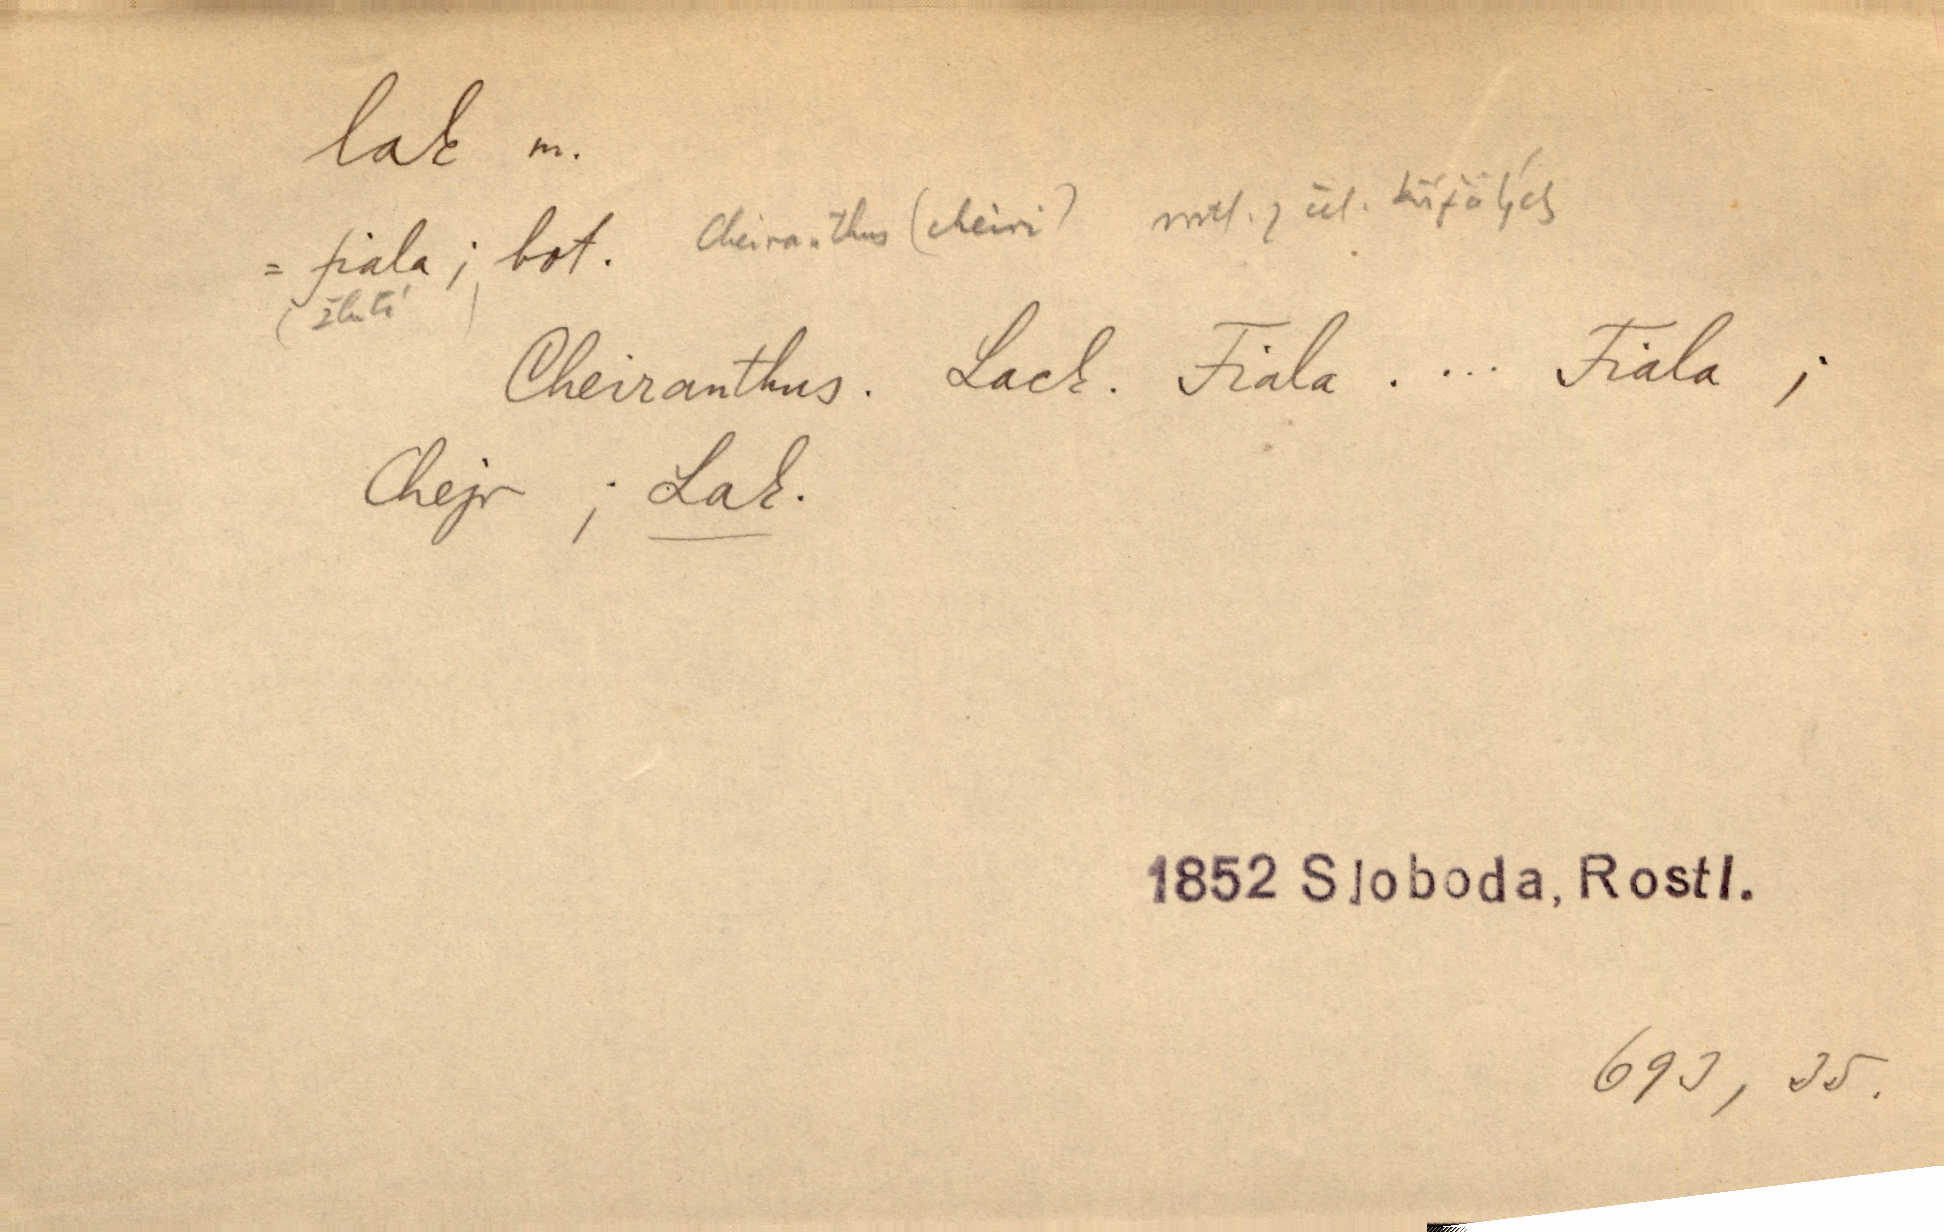 lak m.
= fiala ; bot. Cheiranthus (cheiri) rostl. z čel. křížatých
(žlutá)
Cheiranthus. Lack. Fiala . ... Fiala ;
Chejr ; Lak.
1852 Sloboda, Rostl.
693, 35.